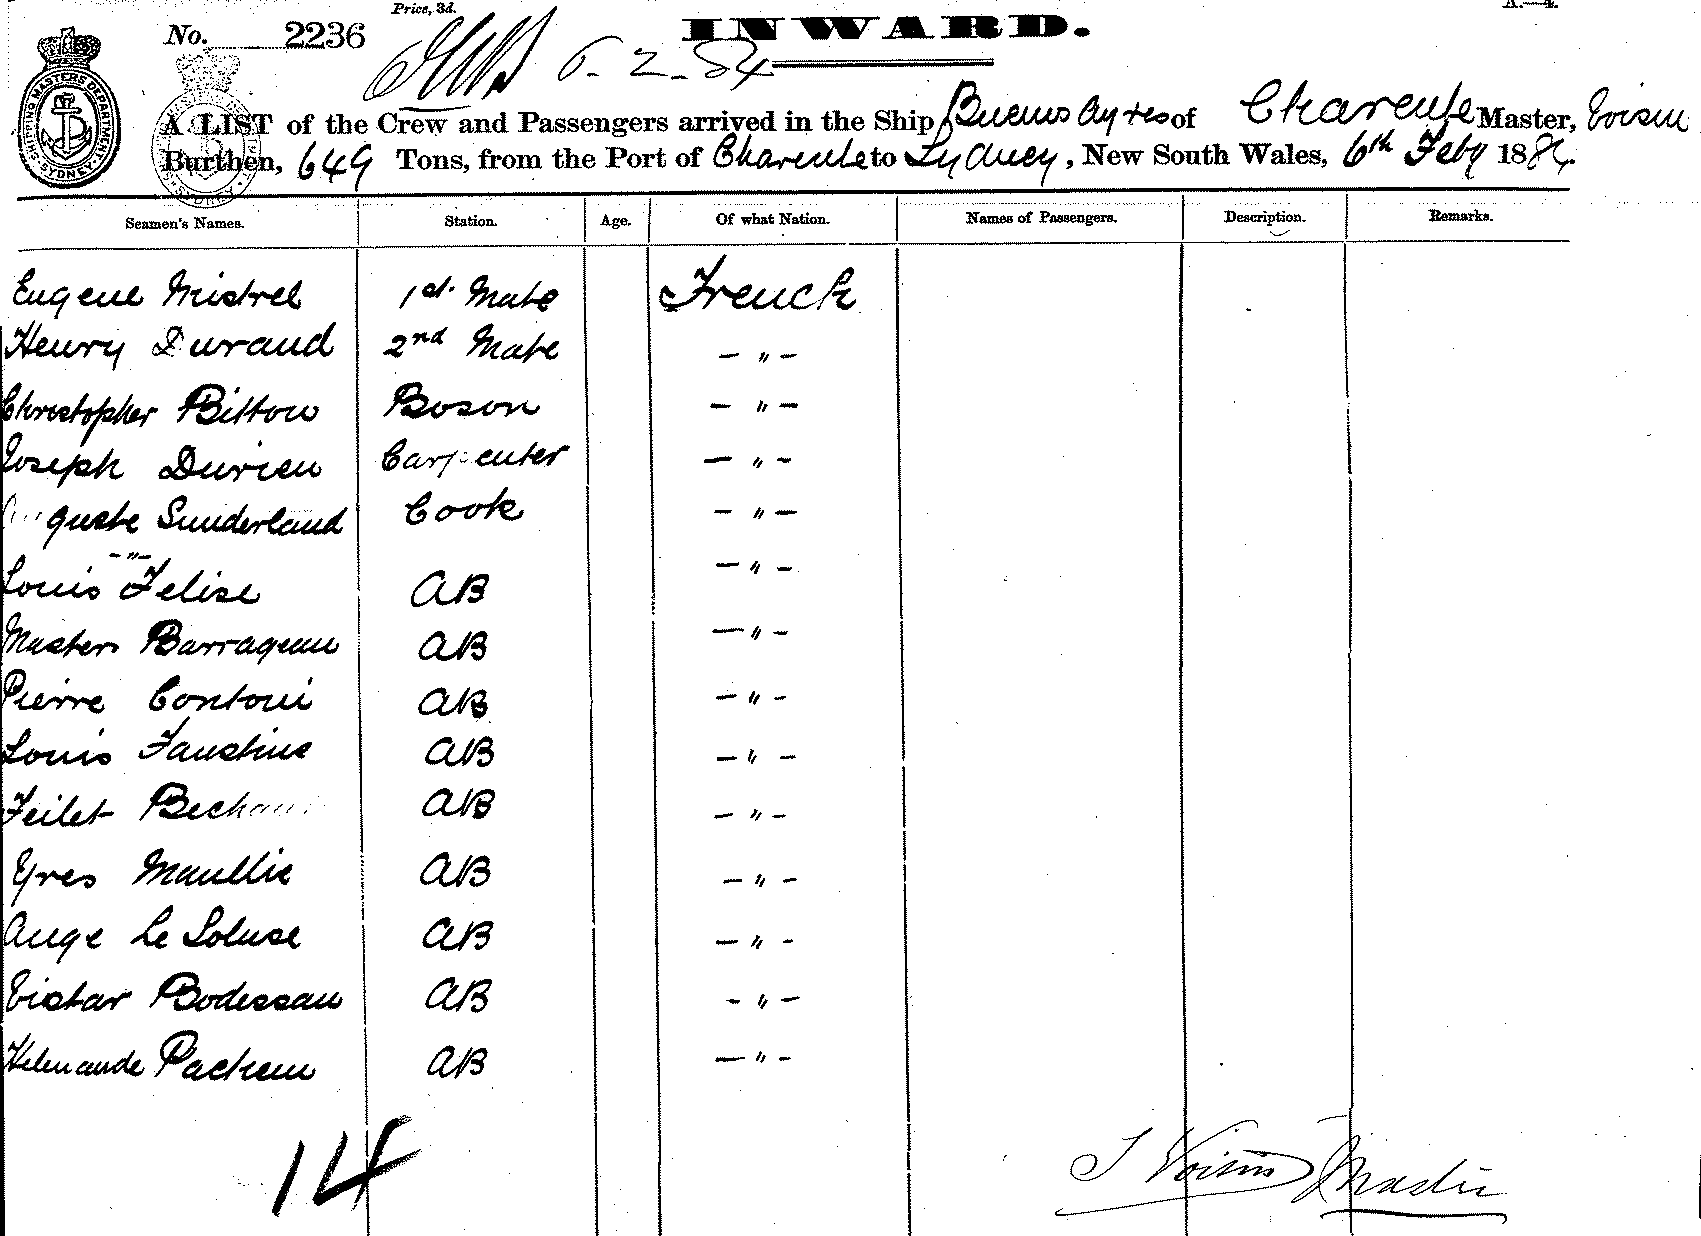 Price, 3d.
A.—4.
No. 2236
INWARD.
6.2.84
SHIPPING MASTERS DEPARTMENT SYDNEY
A LIST of the Crew and Passengers arrived in the Ship Buenos Ayres of Charente Master, Voisin
Burthen, 649 Tons, from the Port of Charente to Sydney, New South Wales, 6th Feby 1884.
Seamen's Names. Station. Age. Of what Nation. Names of Passengers. Description. Remarks.
Eugene Mistrel 1st. Mate French
Henry Duraud 2nd Mate – " –
Christopher Bitton Boson – " –
Joseph Durien Carpenter – " –
Auguste Sunderland Cook – " –
– " –
Louis Felise AB – " –
Barrageau AB – " –
Pierre Contoui AB – " –
Louis Faustine AB – " –
Feilet AB – " –
Yves Maullie AB – " –
Auge Le Soluse AB – " –
Victar Bodessau AB – " –
Packem AB – " –
14
J Voisin Master